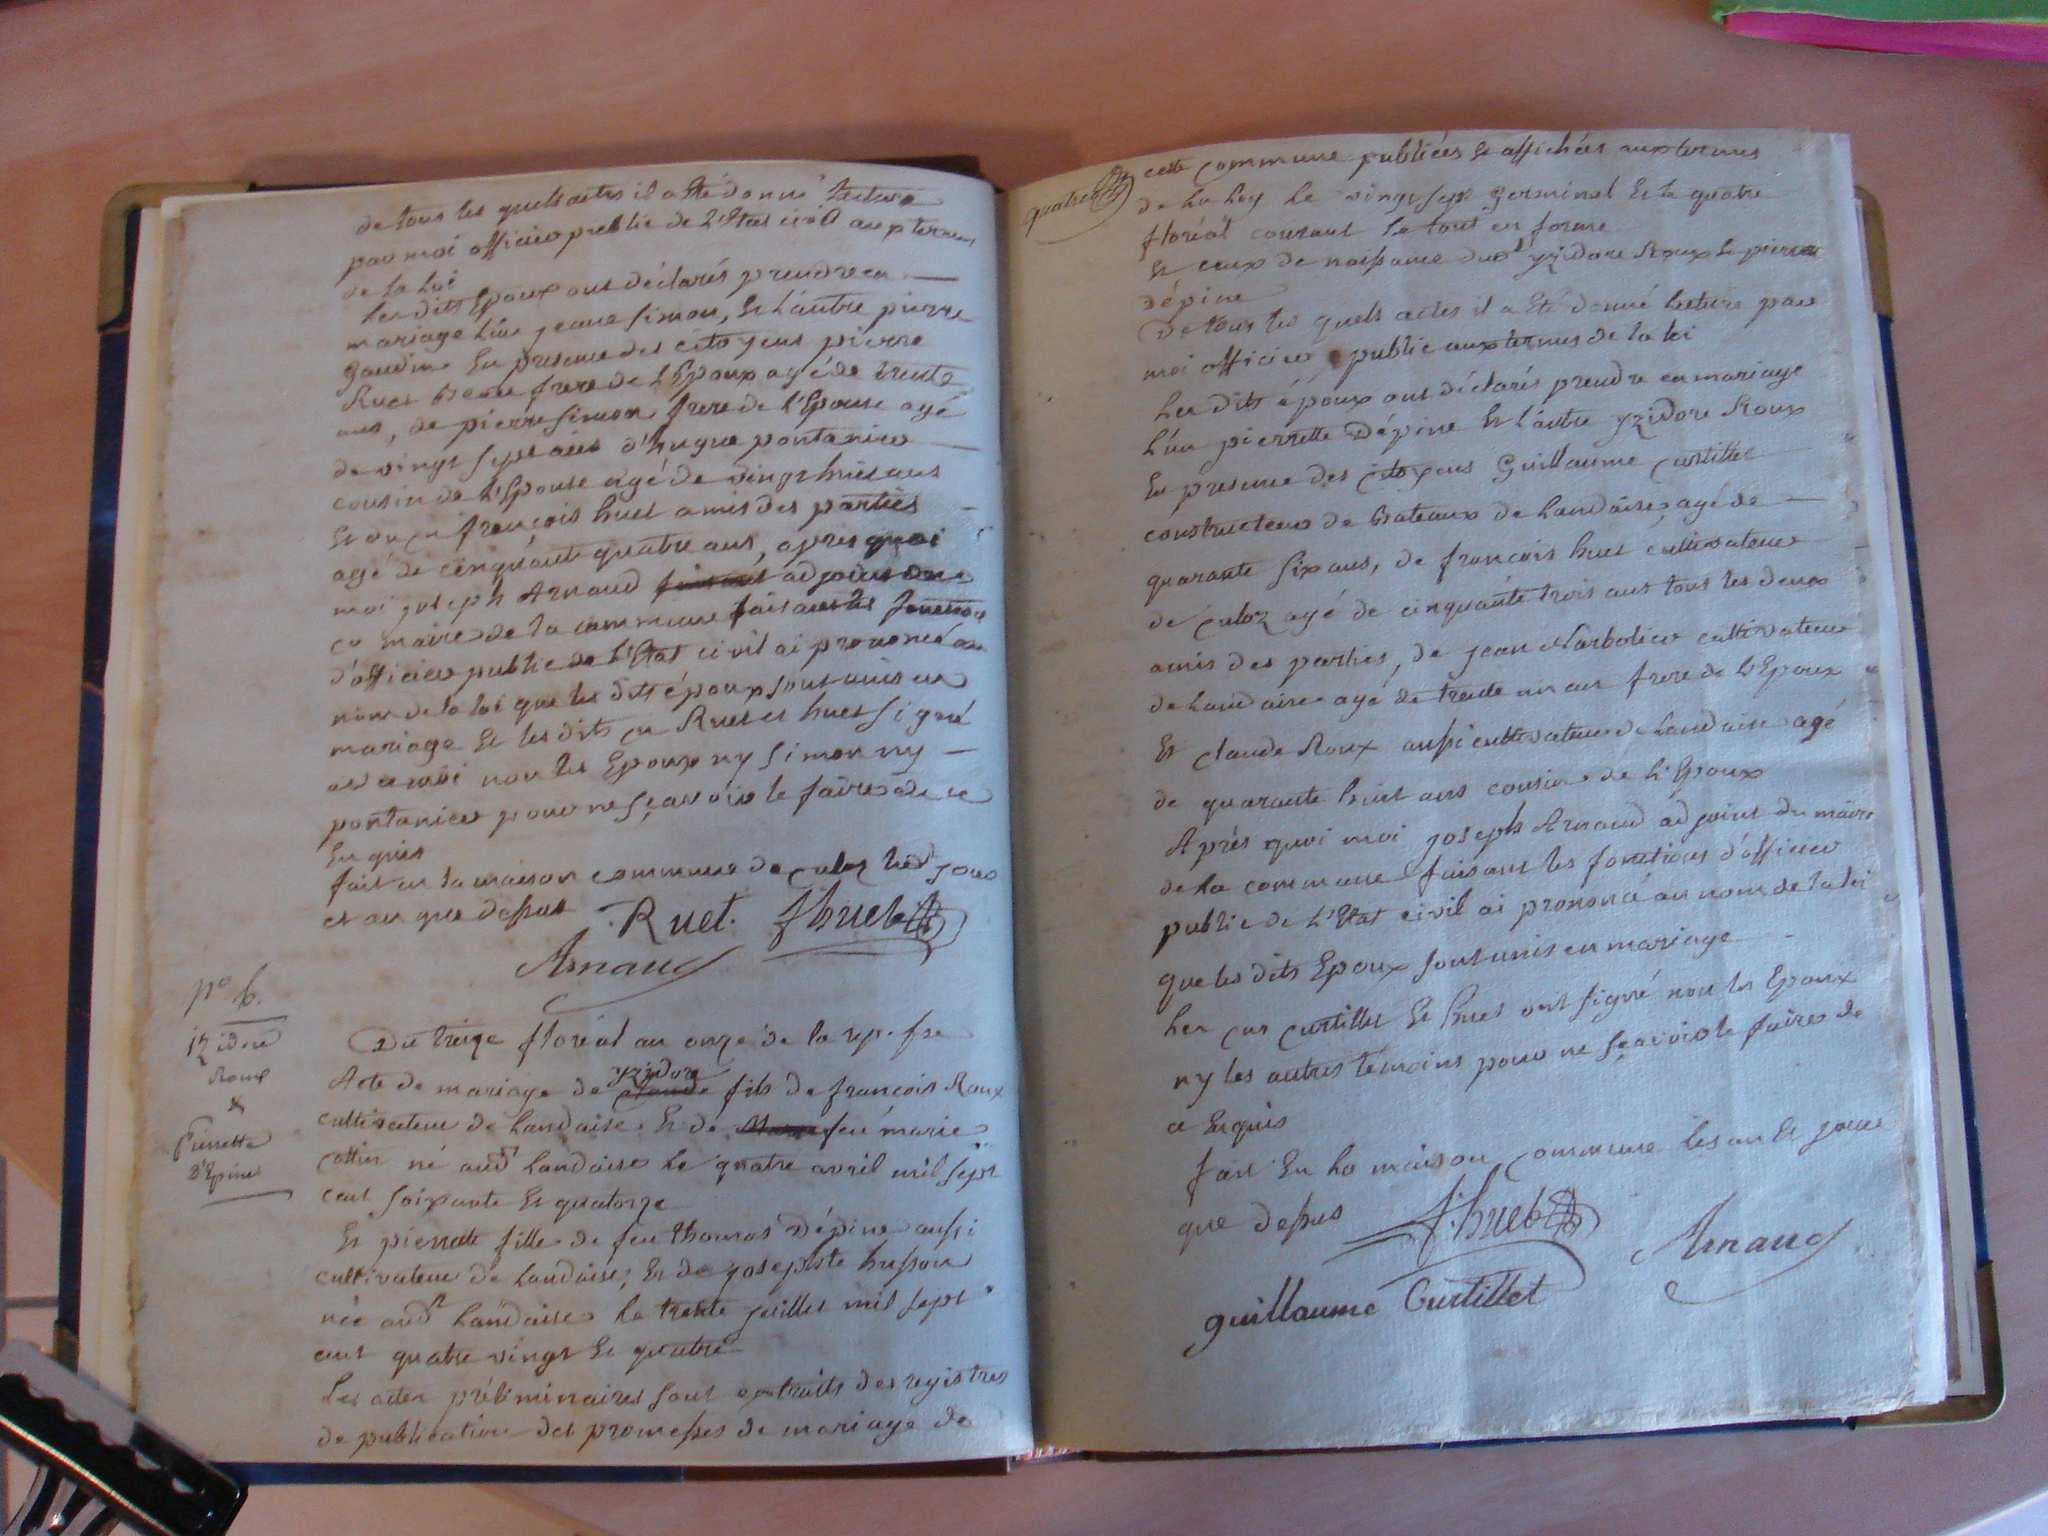 de tous les quels actes il a été donné lecture
par moi officier public de l'Etat civil aux termes
de la loi
les dits Epoux ont déclarés prendre en
mariage l'un jeane simon, et l'autre pierre
gaudin en presence des citoyens pierre
Ruet frere de l'Epoux agé de trente
ans, de pierre simon frere de l'Epouse agé
de vingt sept ans d'hugue pontanier
cousin de l'Epouse agé de vingt huit ans
et du cn françois huet amis des parties
agé de cinquante quatre ans, apres quoi
moi joseph Arnaud adjoint
maire de la commune faisant les fonctions
d'officier public de l'Etat civil ai prononcé au
nom de la loi que les dits époux sont unis en
mariage et les dits cn Ruet et huet signé
avec moi non les Epoux ny simon ny
pontanier pour ne sçavoir le faire de ce
Enquis
fait en la maison commune de culoz les d. jour
et an que dessus
Ruet. fhuet
Arnaud
no 6.
izidore
Roux
x
Pierrette
D'Epine
Du treize floréal an onze de la rep. fse
Acte de mariage de yzidore claude fils de françois Roux
cultivateur de landaise et de feu marie
cottin né aud. landaise le quatre avril mil sept
cent soixante et quatorze
Et pierrette fille de feu thomas Dépine aussi
cultivateur de landaise, et de josephte husson
née aud. landaise le trente juillet mil sept
cent quatre vingt et quatre
les actes préliminaires sont extraits des registres
de publication des promesses de mariage de
quatre
cette commune publiées et affichées aux termes
de la loy le vingt sept germinal et le quatre
floréal courant le tout en forme
et ceux de naissance dud. yzidore Roux et pierrette
dépine
De tous les quels actes il a été donné lecture par
moi officier public aux termes de la loi
Les dits époux ont déclarés prendre en mariage
l'un pierrette Dépine et l'autre yzidore Roux
En presence des citoyens Guillaume curtillet
constructeur de bateaux de landaise, agé de
quarante six ans, de françois huet cultivateur
de culoz agé de cinquante trois ans tous les deux
amis des parties, de jean Narbolier cultivateur
de landaise agé de trente un an frere de l'Epoux
Et claude Roux aussi cultivateur de landaise agé
de quarante huit ans cousin de l'Epoux
Après quoi moi joseph Arnaud adjoint du maire
de la commune faisant les fonctions d'officier
public de l'Etat civil ai prononcé au nom de la loi
que les dits Epoux sont unis en mariage
les cns curtillet et huet ont signé non les Epoux
ny les autres témoins pour ne sçavoir le faire de
ce Enquis
fait En la maison commune les an et jour
que dessus
f. huet
Arnaud
guillaume Curtillet